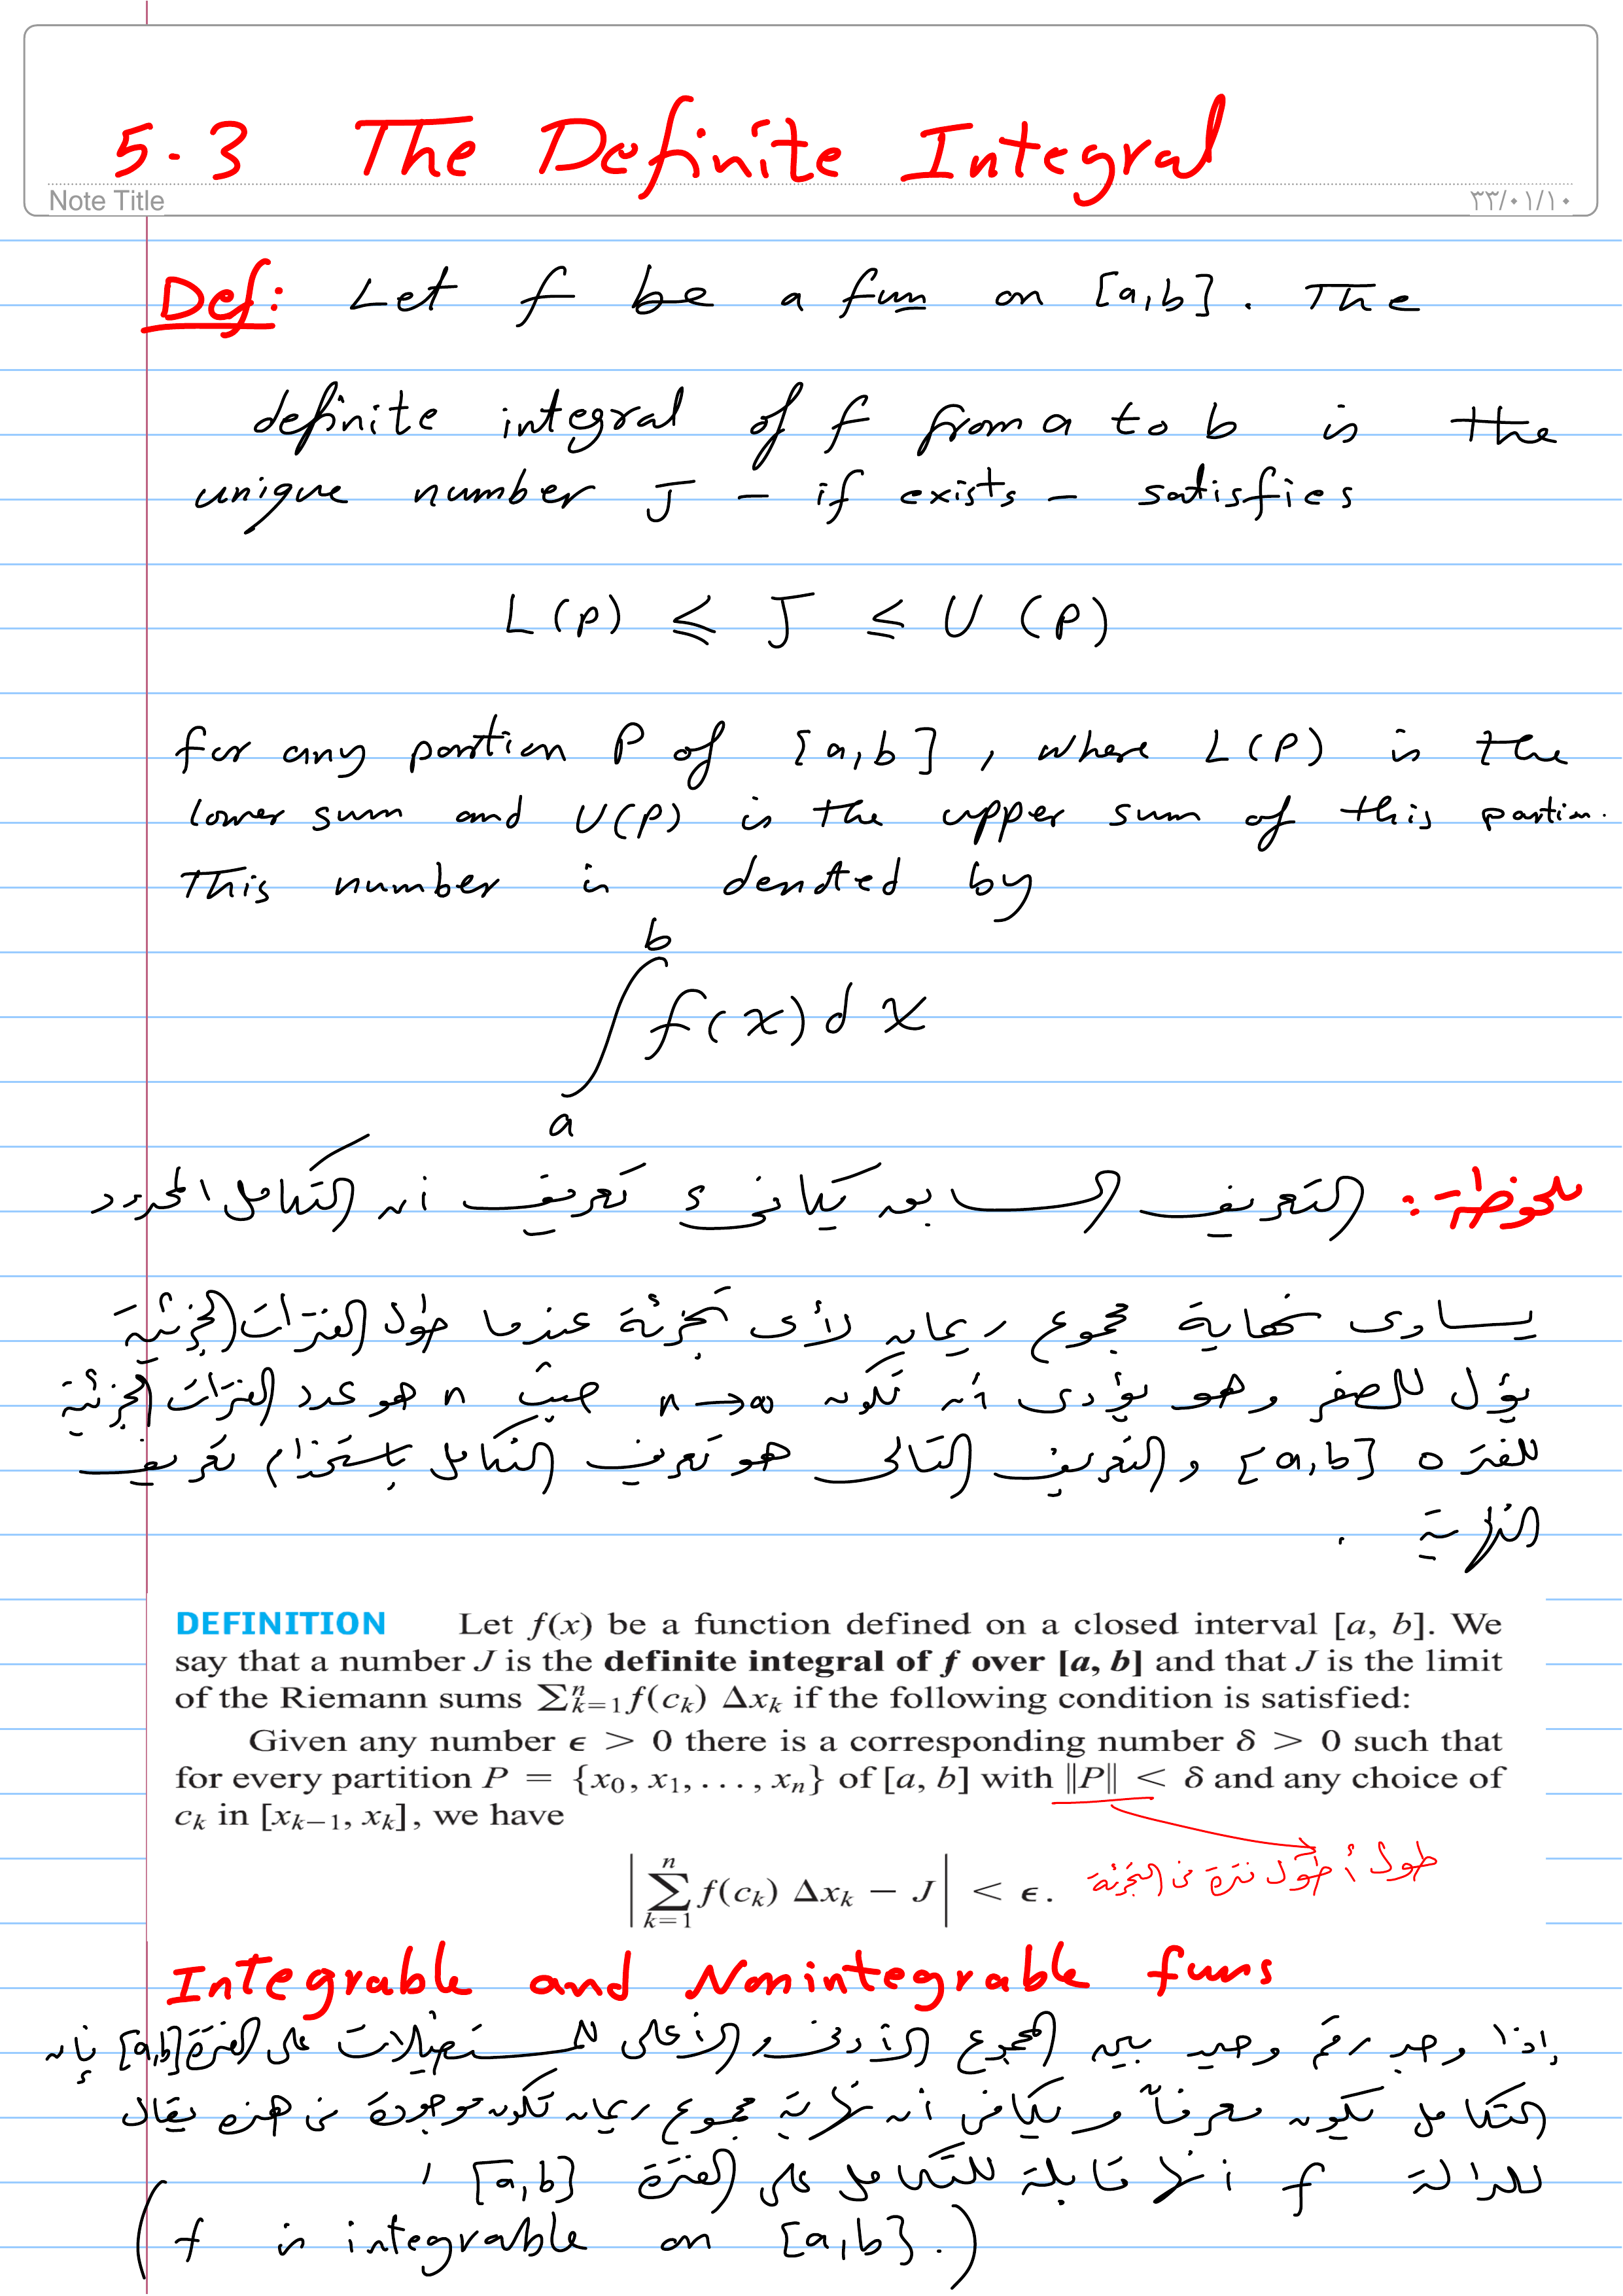 5.3 The Definite Integral
Note Title
٣٣/٠١/١٠
Def: Let f be a fun on [a,b]. The
definite integral of f from a to b is the
unique number J - if exists - satisfies
L(P) ≤ J ≤ U(P)
for any partion P of [a,b], where L(P) is the
lower sum and U(P) is the upper sum of this partion.
This number is denoted by
∫_a^b f(x) dx
ملحوظة: التعريف السابق يكافىء تعريف أن التكامل المحدد
يساوى نهاية مجموع ريمان لأى تجزئة عندما طول الفترات الجزئية
يؤل للصفر وهو يؤدى أن تكون n→∞ حيث n هو عدد الفترات الجزئية
للفترة [a,b] والتعريف التالى هو تعريف التكامل باستخدام تعريف
النهاية .
DEFINITION Let f(x) be a function defined on a closed interval [a, b]. We
say that a number J is the definite integral of f over [a, b] and that J is the limit
of the Riemann sums ∑ⁿₖ₌₁ f(cₖ) Δxₖ if the following condition is satisfied:
Given any number ϵ > 0 there is a corresponding number δ > 0 such that
for every partition P = {x₀, x₁, . . . , xₙ} of [a, b] with ‖P‖ < δ and any choice of
cₖ in [xₖ₋₁, xₖ], we have
|∑ⁿₖ₌₁ f(cₖ) Δxₖ − J| < ϵ.
طول أطول فترة فى التجزئة
Integrable and Nonintegrable funs
إذا وجد رقم وحيد بين المجموع الأدنى والأعلى للمستطيلات على الفترة [a,b] فإن
التكامل يكون معرفاً ويكافئ أن نهاية مجموع ريمان تكون موجودة فى هذه يقال
للدالة f أنها قابلة للتكامل على الفترة [a,b]
(f is integrable on [a,b].)